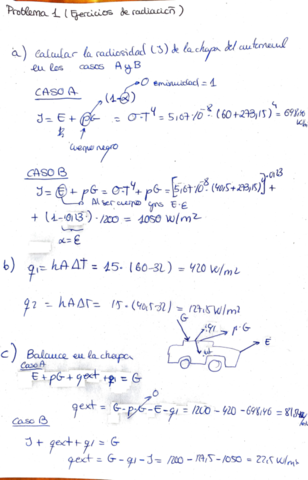 Problema 1 (Ejercicios de radiación)
a) Calcular la radiosidad (J) de la chapa del automovil
en los casos A y B
CASO A
0 emisividad = 1
(1-α)
J = E + ρG = σ·T⁴ = 5,67·10⁻⁸·(60+273,15)⁴ =
cuerpo negro
CASO B
J = E + ρG = σ·T⁴ + ρG = [5,67·10⁻⁸ (40,5+273,15)⁴]·0,13 +
Al ser cuerpo gris E·ε
+ (1-0,13)·1200 = 1050 W/m²
α=ε
b) q₁ = hAΔT = 15·(60-32) = 420 W/m²
q₂ = hAΔT = 15·(40,5-32) = 127,5 W/m²
G q₁ ρ·G
E
c) Balance en la chapa
Caso A
E + ρG + qext + q₁ = G
0
qext = G - ρ·G - E - q₁ = 1200 - 420 - 698,46 =
Caso B
J + qext + q₁ = G
qext = G - q₁ - J = 1200 - 127,5 - 1050 = 22,5 W/m²